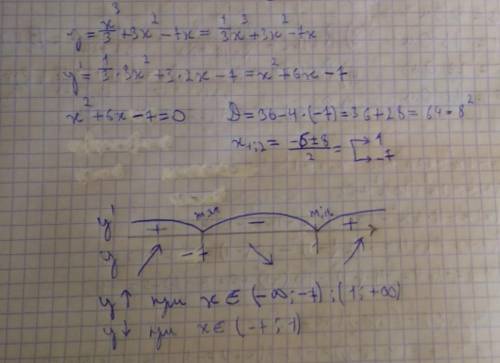 y = x³/3 + 3x² - 7x = 1/3 x³ + 3x² - 7x
y' = 1/3 · 3x² + 3 · 2x - 7 = x² + 6x - 7
x² + 6x - 7 = 0 D = 36 - 4 · (-7) = 36 + 28 = 64 = 8²
x₁;₂ = (-6 ± 8)/2 = → 1 → -7
y' + max - min +
y -7 1
y ↑ при x ∈ (-∞; -7) ; (1; +∞)
y ↓ при x ∈ (-7; 1)